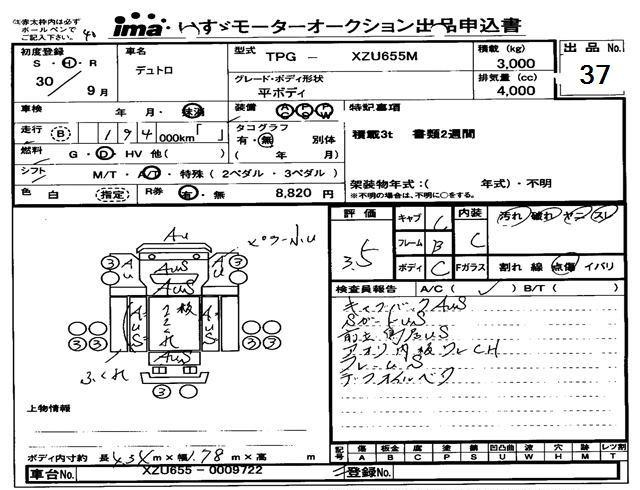 注)赤太枠内は必ず
ボールペンで
ご記入下さい。
ima いすゞモーターオークション出品申込書
初度登録 S・H・R 30年 9月
車名 デュトロ
型式 TPG － XZU655M
グレード・ボディ形状 平ボディ
積載 (kg) 3,000
排気量 (cc) 4,000
出品 No. 37
車検 年・月・抹消
装備 AC PS PW
特記事項
走行 B 194,000km「 」
タコグラフ 有・無 別体
( 年 月)
積載3t 書類2週間
燃料 G・D・HV 他( )
シフト M/T・A/T・特殊 (2ペダル・3ペダル)
架装物年式:( 年式)・不明
※不明の場合は、不明に○をする。
色 白 (指定) R券 有・無 8,820 円
評価 3.5
キャブ C
フレーム B
ボディ C
内装 C
汚れ 破れ ヤニ スレ
Fガラス 割れ 線 点傷 イバリ
検査員報告 A/C( ✓ ) B/T( )
AU
AUS
AUS
AU
AUS
AUS
3 3
3 3
3
ふくれ
キャブバックAUS
アオリ内板ワレCH
フレームUS
上物情報
ボディ内寸約 長4.34m×幅1.78m×高 m
記号 傷A 板金B 腐C 塗P 錆S 凹凸曲U 波W 穴H 跡M レツ割T
車台No. XZU655－0009722
登録No.